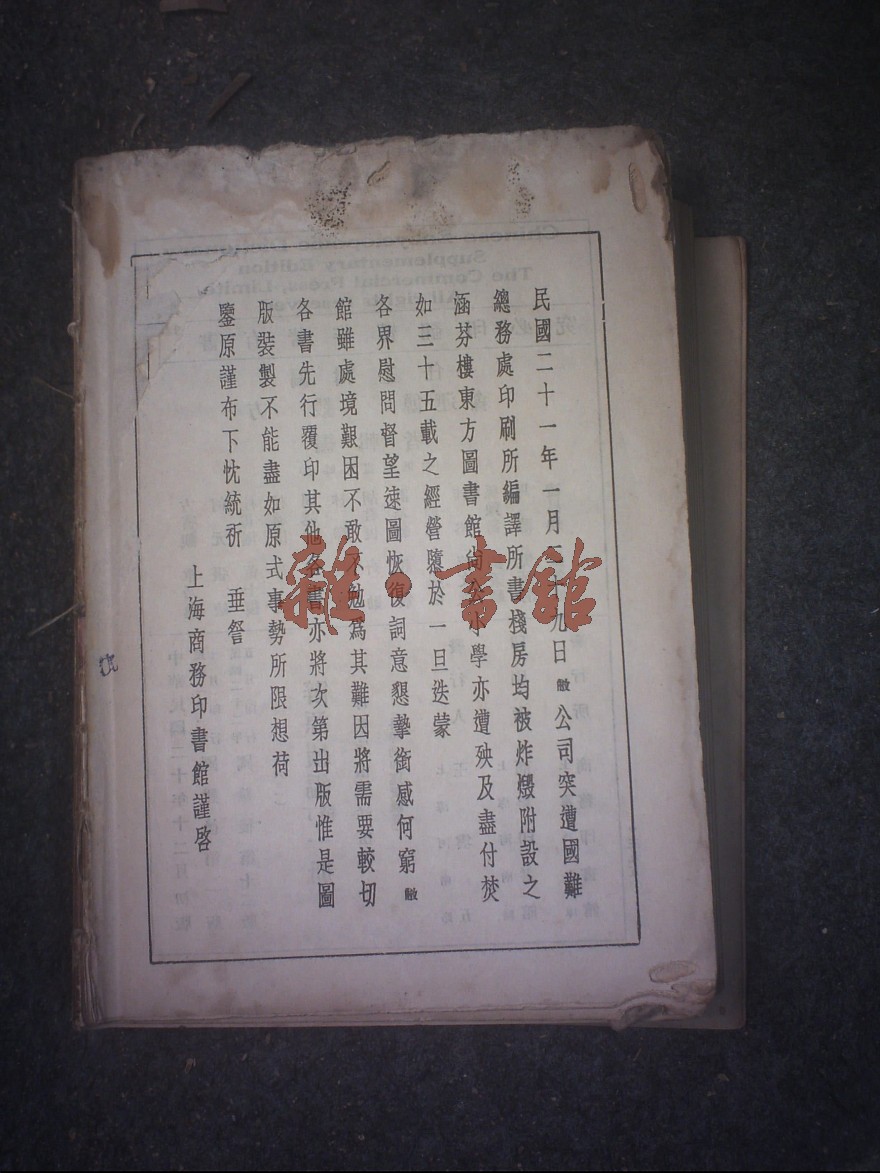 民國二十一年一月二十九日敝公司突遭國難
總務處印刷所編譯所書棧房均被炸燬附設之
涵芬樓東方圖書館尚公小學亦遭殃及盡付焚
如三十五載之經營隳於一旦迭蒙
各界慰問督望速圖恢復詞意懇摯銜感何窮敝
館雖處境艱困不敢不勉爲其難因將需要較切
各書先行覆印其他各書亦將次第出版惟是圖
版裝製不能盡如原式事勢所限想荷
鑒原謹布下忱統祈 垂詧
上海商務印書館謹啓
雜·書館